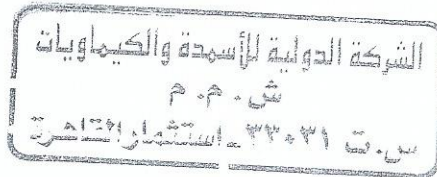 الشركة الدولية للأسمدة والكيماويات
ش. م. م
س.ت ٣٣٠٣١ - استثمار القاهرة